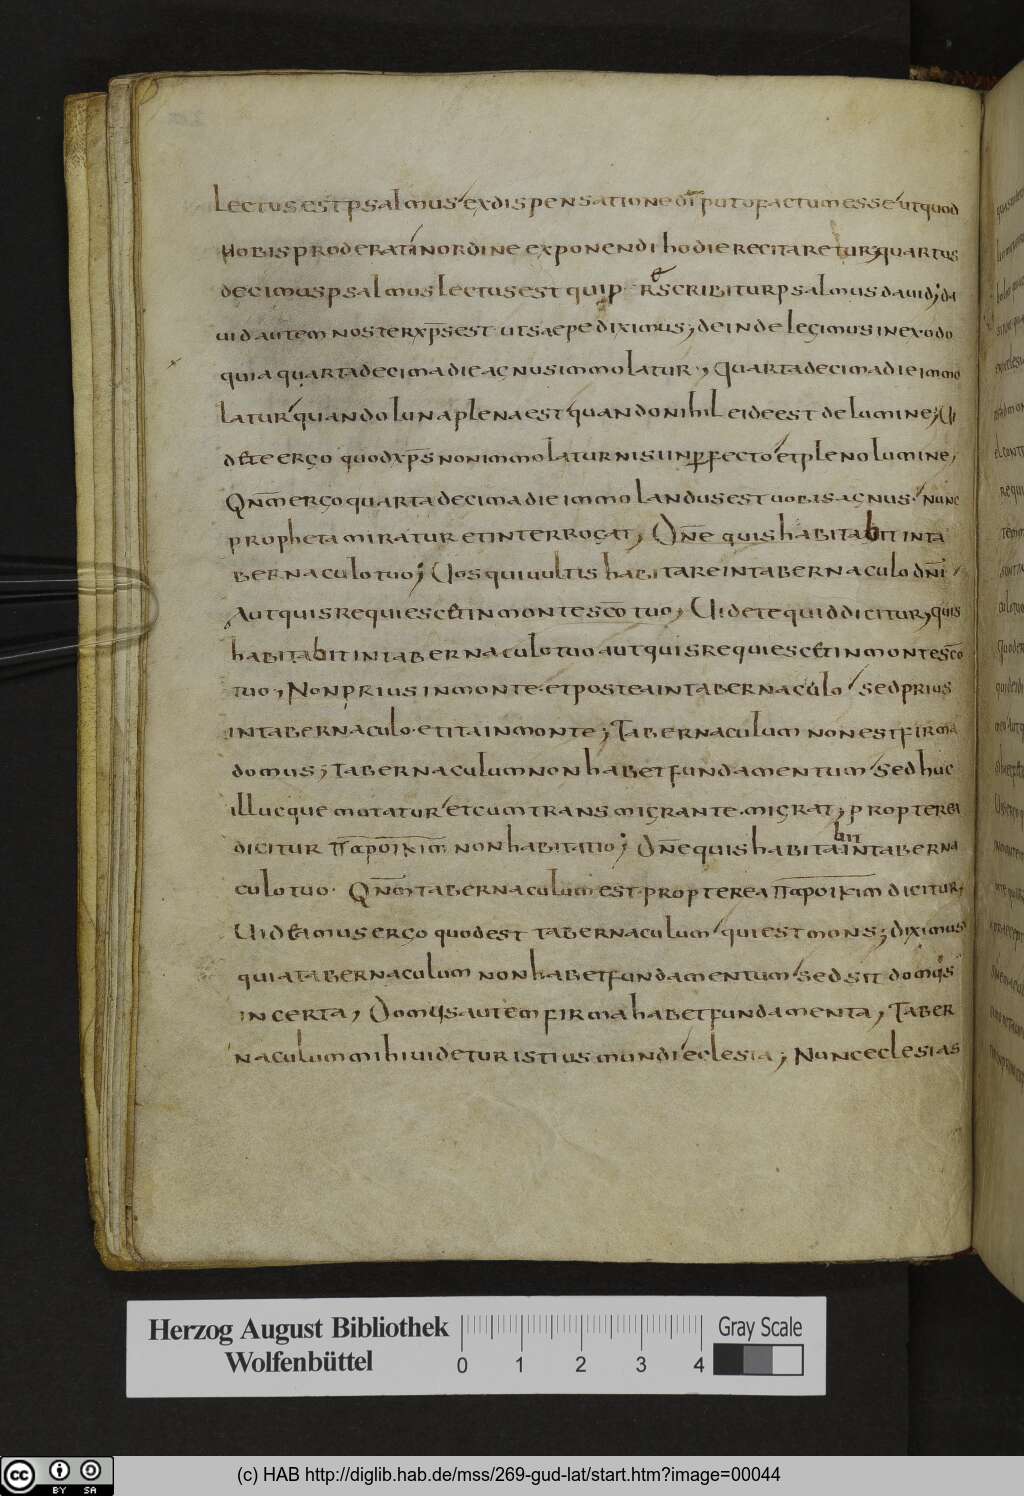 Lectus est psalmus ex dispensatione dī puto factum esse ut quod
uobis proderat in ordine exponendi hodie recitaretur; quartus
decimus psalmus lectus est qui pr scribitur psalmus dauid; da
uid autem noster xp̄s est ut saepe diximus; deinde legimus in exodo
quia quarta decima die agnus immolatur, Quarta decima die immo
latur quando luna plena est quando nihil ei deest de lumine; Ui
dete ergo quod xp̄s non immolatur nisi in perfecto et pleno lumine,
Qnm̄ ergo quarta decima die immolandus est uobis agnus. nunc
propheta miratur et interrogat, Dn̄e quis habitabit in ta
bernaculo tuo; Uos qui uultis habitare in tabernaculo dn̄i
Aut quis requiescet in monte sc̄o tuo, Uidete quid dicitur, quis
habitabit in tabernaculo tuo aut quis requiescet in monte sc̄o
tuo, Non prius in monte. et postea in tabernaculo sed prius
in tabernaculo. et ita in monte; Tabernaculum non est firma
domus; tabernaculum non habet fundamentum sed huc
illucque motatur et cum transmigrante. migrat; propterea
dicitur παροικιm non habitatio; Dn̄e quis habitabit in taberna
culo tuo. Qnm̄ tabernaculum est. propterea παροικιm dicitur,
Uideamus ergo quod est tabernaculum qui est mons; diximus
quia tabernaculum non habet fundamentum sed sit domus
incerta, Domus autem firma habet fundamenta, Taber
naculum mihi uidetur istius mundi eclesia; Nunc eclesias
Herzog August Bibliothek
Wolfenbüttel
0 1 2 3 4
Gray Scale
cc BY SA
(c) HAB http://diglib.hab.de/mss/269-gud-lat/start.htm?image=00044